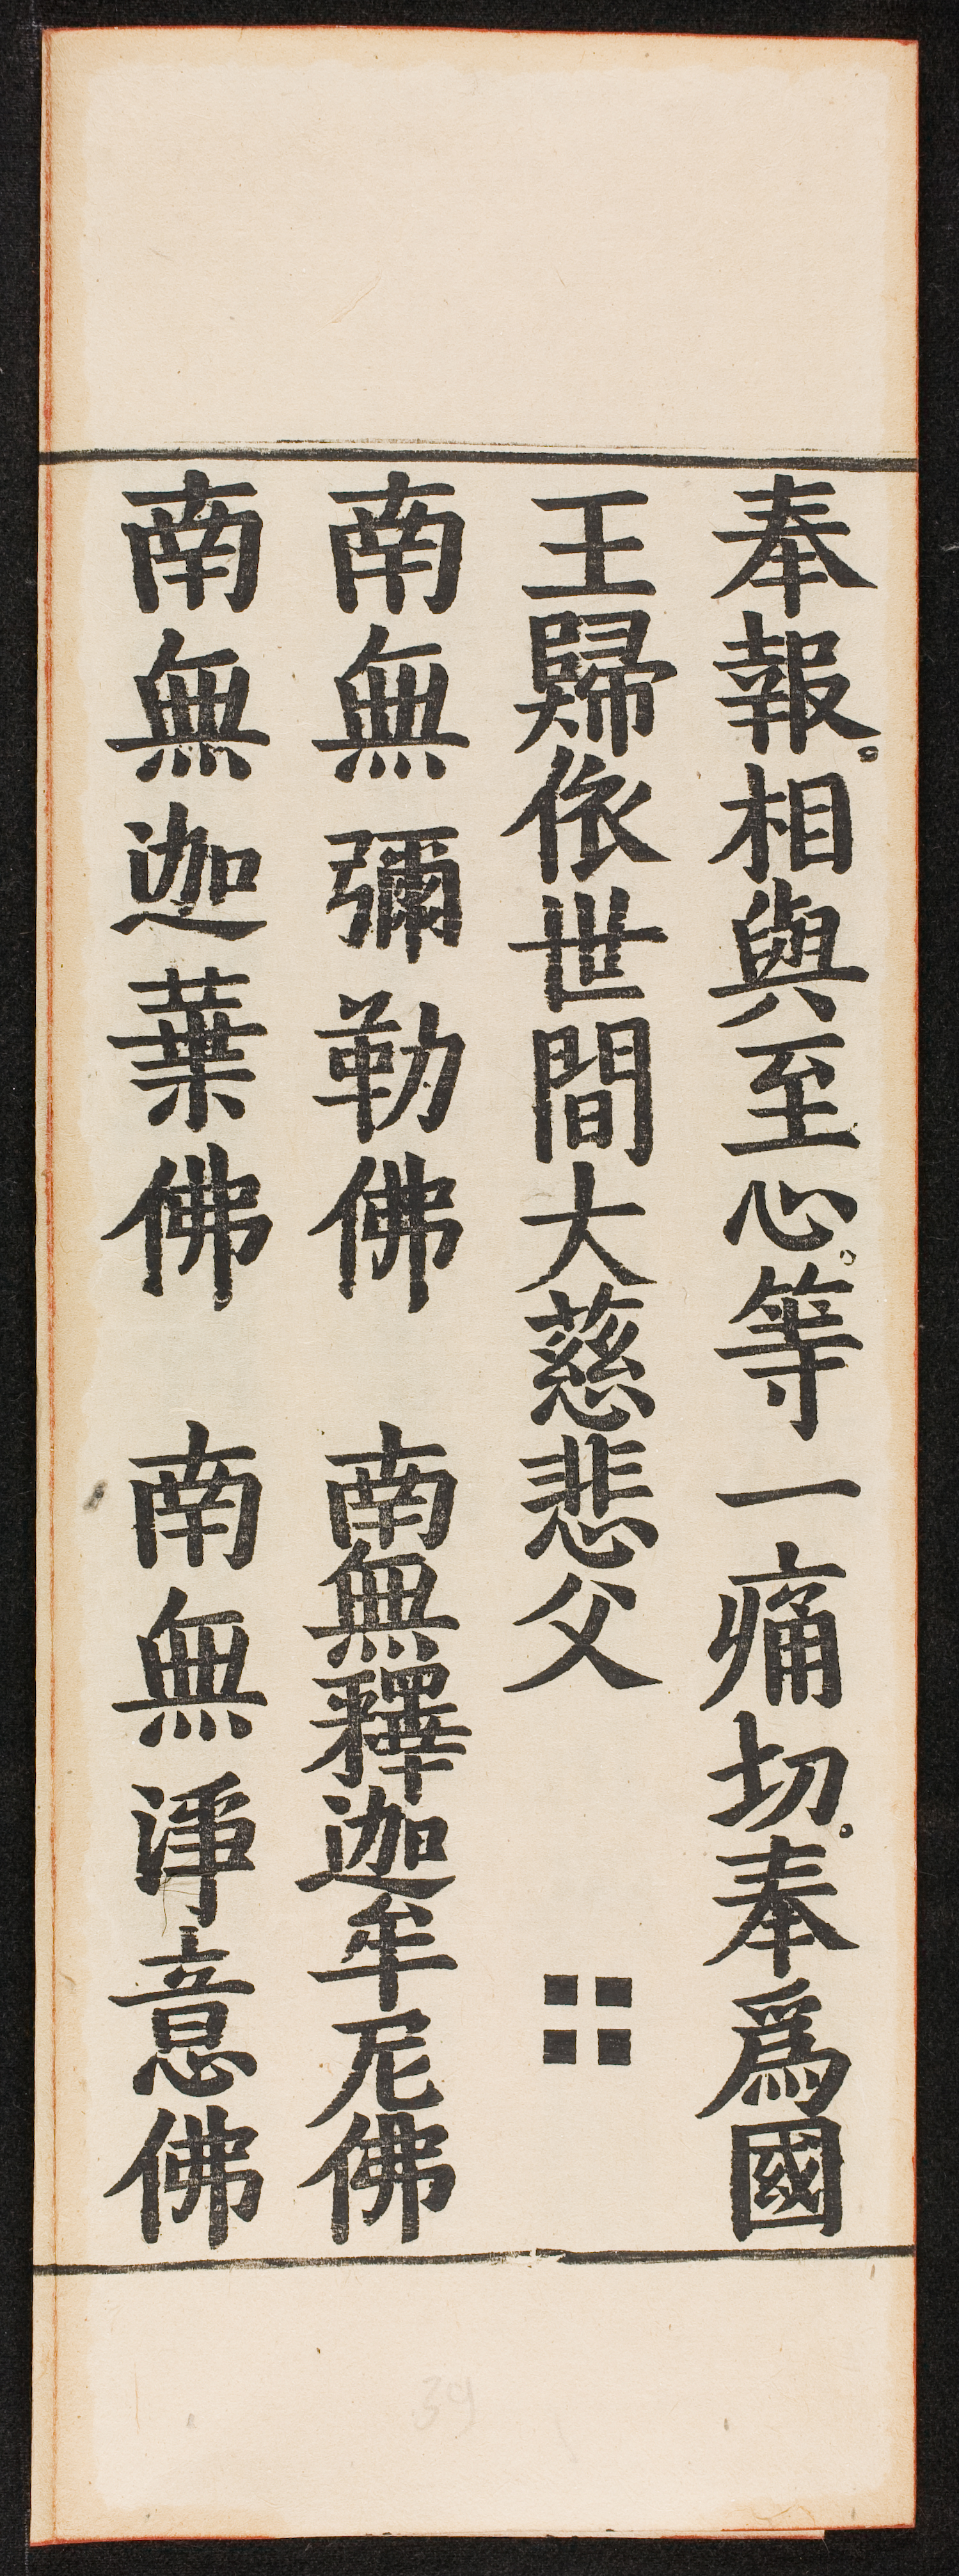 奉報。相與至心。等一痛切。奉爲國
王歸依世間大慈悲父
南無彌勒佛　南無釋迦牟尼佛
南無迦葉佛　南無淨意佛
39